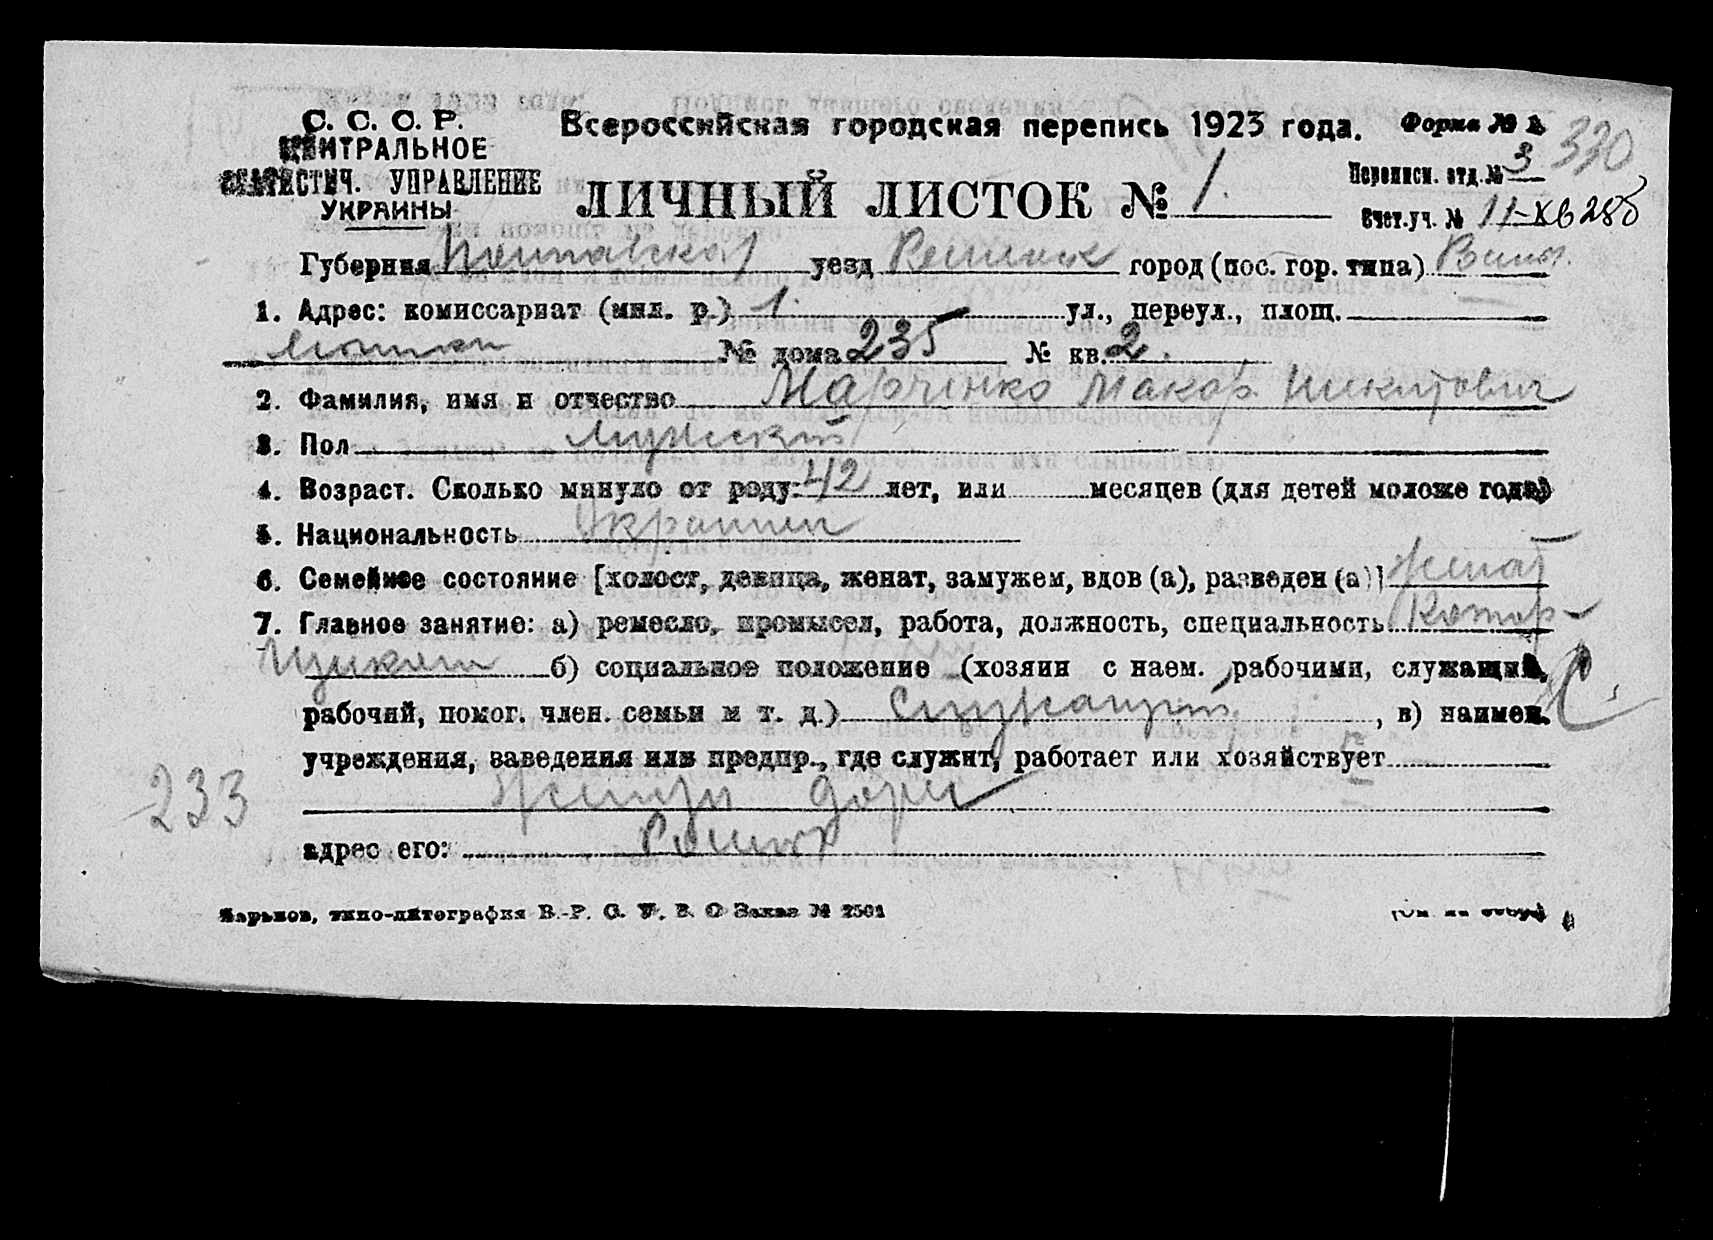 С. С. С. Р.
ЦЕНТРАЛЬНОЕ
СТАТИСТИЧ. УПРАВЛЕНИЕ
УКРАИНЫ
Всероссийская городская перепись 1923 года.
Форма № 1
330
Переписн. отд. № 3
ЛИЧНЫЙ ЛИСТОК № 1.
Счет.уч. № 11-
Губерния Полтавская уезд город (пос. гор. типа)
1. Адрес: комиссариат (мил. р.) 1. ул., переул., площ.
№ дома 235 № кв. 2.
2. Фамилия, имя и отчество Марченко Макар Никитович
3. Пол мужской
4. Возраст. Сколько минуло от роду: 42 лет, или месяцев (для детей моложе года)
5. Национальность Украинец
6. Семейное состояние [холост, девица, женат, замужем, вдов (а), разведен (а)] женат
7. Главное занятие: а) ремесло, промысел, работа, должность, специальность Контор-
щиком б) социальное положение (хозяин с наем. рабочими, служащий,
рабочий, помог. член. семьи и т. д.) Служащий, в) наимен.
учреждения, заведения или предпр., где служит, работает или хозяйствует
233
адрес его:
Харьков, типо-литография В.-Р. С. У. В. О Заказ № 2501